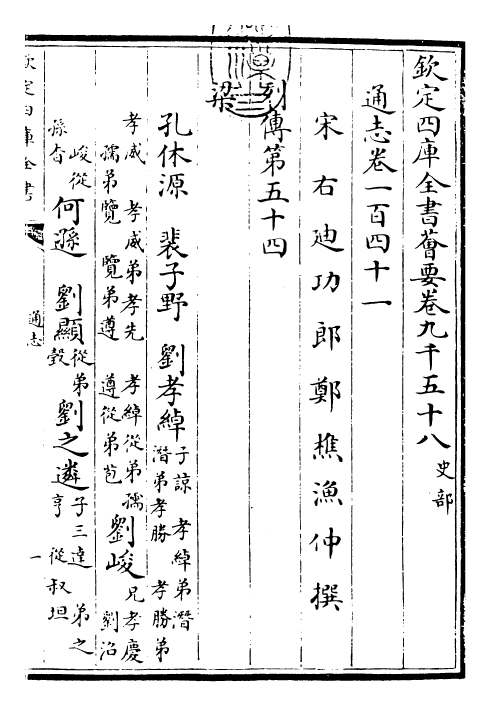 欽定四庫全書薈要卷九千五十八 史部
通志卷一百四十一
宋右廸功郎鄭樵漁仲撰
列傳第五十四
梁
孔休源 裴子野 劉孝綽 子諒 孝綽弟潛 潛弟孝勝 孝勝弟
孝威 孝威弟孝先 孝綽從弟孺 孺弟覽 覽弟遵 遵從弟苞 劉峻 兄孝慶 劉沼
峻從 孫杳 何遜 劉顯 從弟瑴 劉之遴 子三達 弟之亨 從叔坦
欽定四庫全書
通志
一